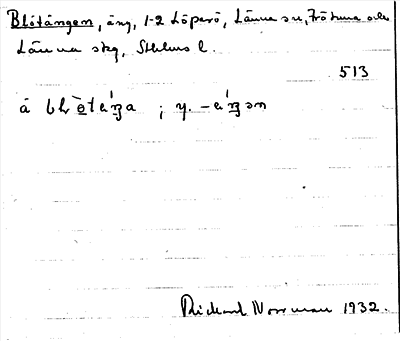 Blötängen, äng, 1-2 Löparö, Länna sn, Frötuna och
Länna skg, Sthlms l.
513
Richard Norrman 1932.